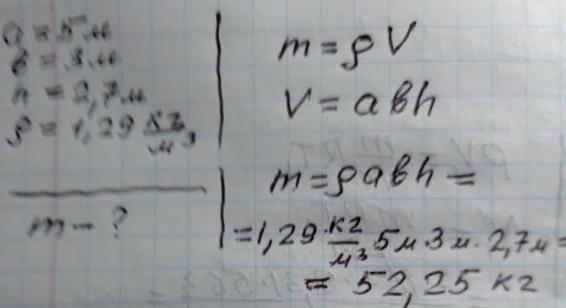 a = 5 м
в = 3 м
h = 2,7 м
ρ = 1,29 кг/м³
m - ?
m = ρV
V = aвh
m = ρaвh =
= 1,29 кг/м³ · 5 м · 3 м · 2,7 м =
= 52,25 кг